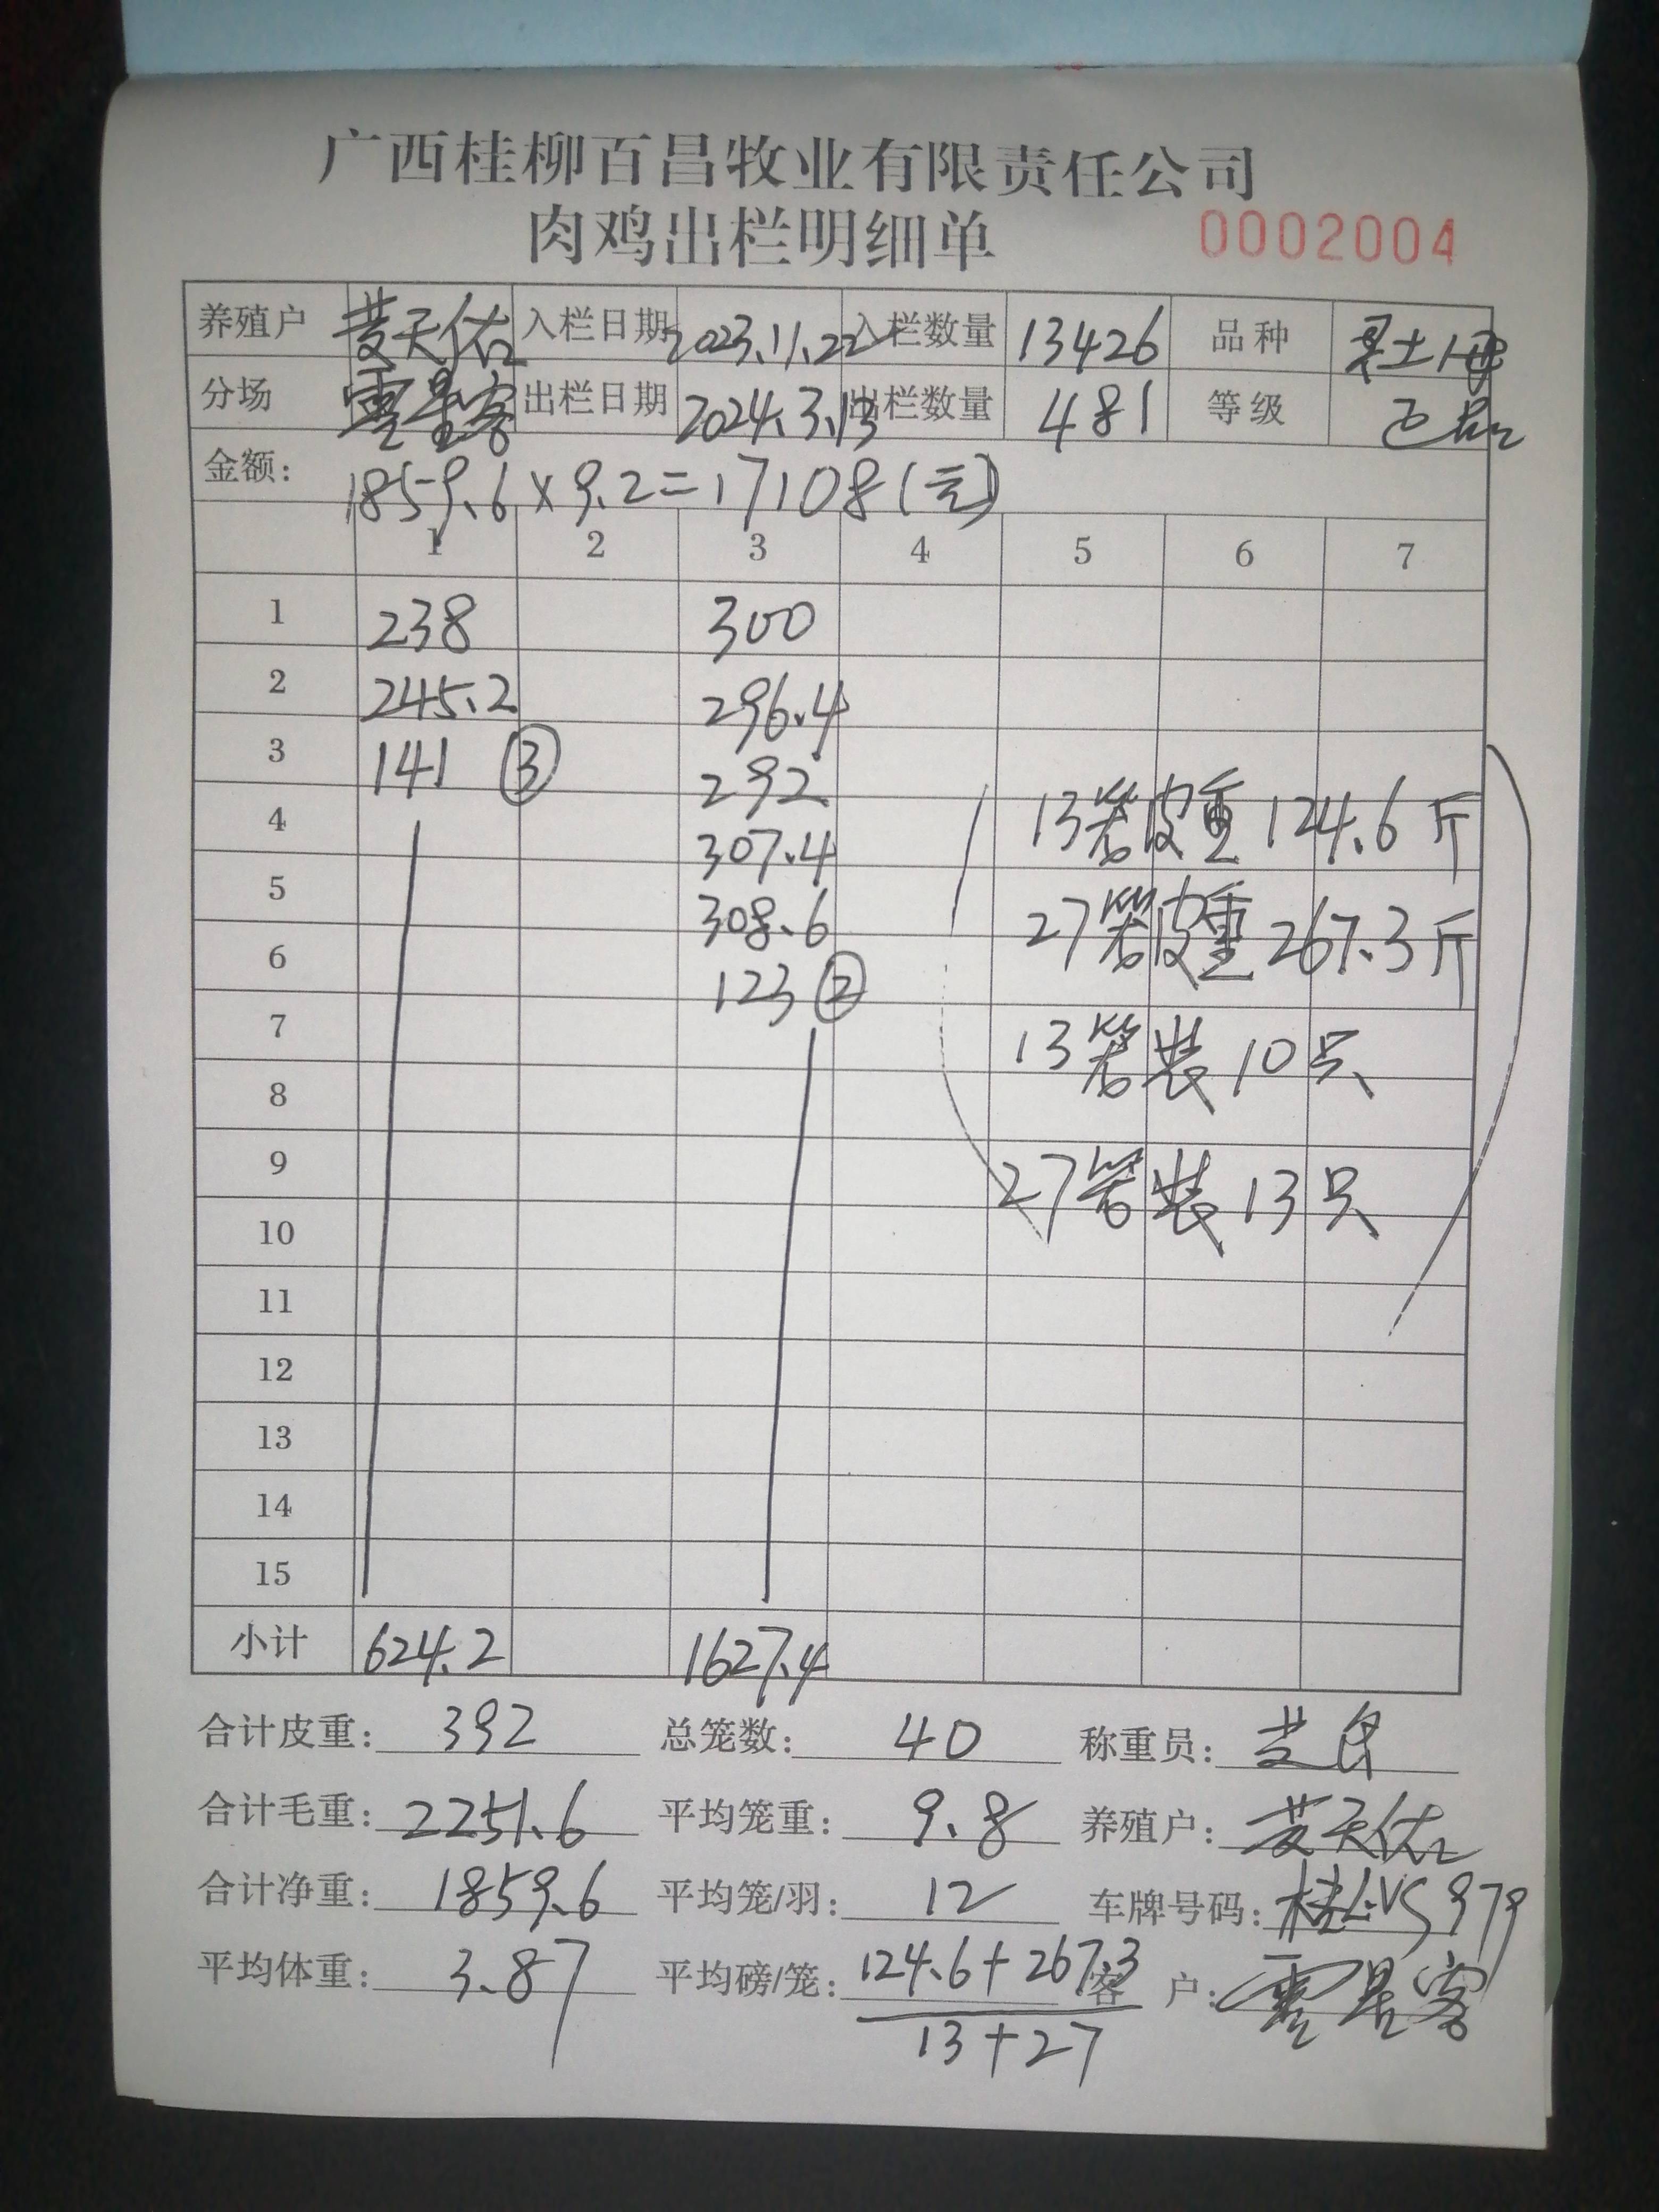 广西桂柳百昌牧业有限责任公司
肉鸡出栏明细单 0002004
养殖户 黄天佑 入栏日期 2023.11.22 入栏数量 13426 品种 土
分场 零星客 出栏日期 2024.3.13 出栏数量 481 等级 正品
金额: 1859.6×9.2=17108(元)
1 2 3 4 5 6 7
1 238 300
2 245.2 296.4
3 141 ③ 292
4 307.4 13笼皮重124.6斤
5 308.6 27笼皮重267.3斤
6 123 ②
7 13笼装10只
8
9 27笼装13只
10
11
12
13
14
15
小计 624.2 1627.4
合计皮重: 392 总笼数: 40 称重员:
合计毛重: 2251.6 平均笼重: 9.8 养殖户: 黄天佑
合计净重: 1859.6 平均笼/羽: 12 车牌号码:
平均体重: 3.87 平均磅/笼: 124.6+267.3 客 户: 零星客
13+27